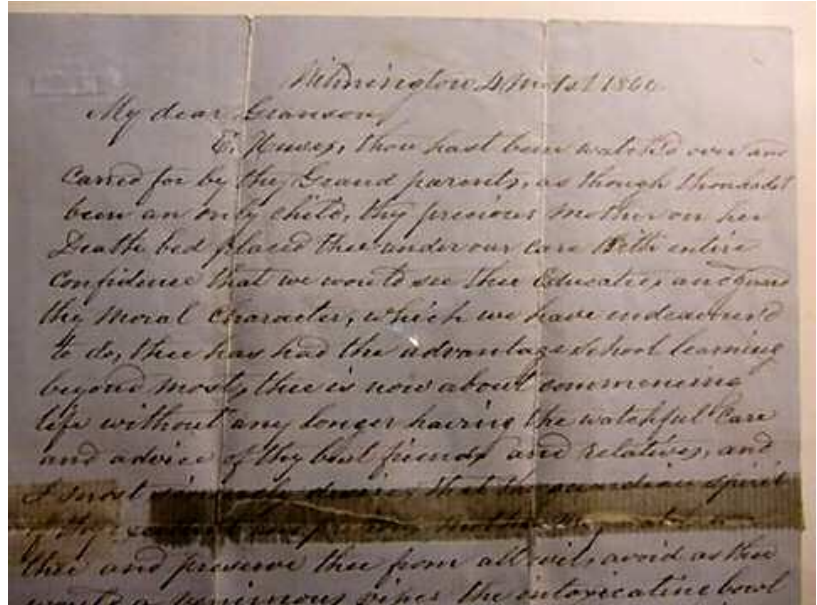 Wilmington 4 Mo 1st 1860
My dear Granson,
E. Hussey, thou hast been watch'd over and
carred for by thy Grand parents, as though thou hadst
been an only child, thy precious Mother on her
Death bed placed thee under our care With entire
confidence that we would see thee Educated and guard
thy moral character, which we have endeavour'd
to do, thee has had the advantage School learning
beyond most, thee is now about commencing
life without any longer having the watchful care
and advice of thy best friends and relatives, and
I most sincerely desire, that the guardian spirit
of thy
thee and preserve thee from all evil, avoid as thee
would a venimous viper the intoxicating bowl